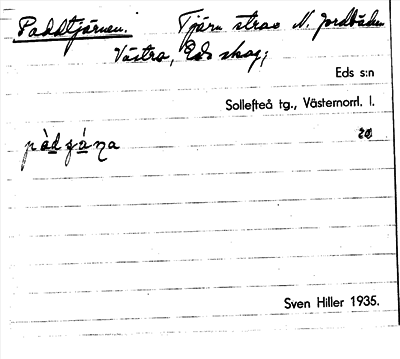 Paddtjärnen. Tjärn strax N. Jordbäden
Västra, Eds skog;
Eds s:n
Sollefteå tg., Västernorrl. l.
20
Sven Hiller 1935.